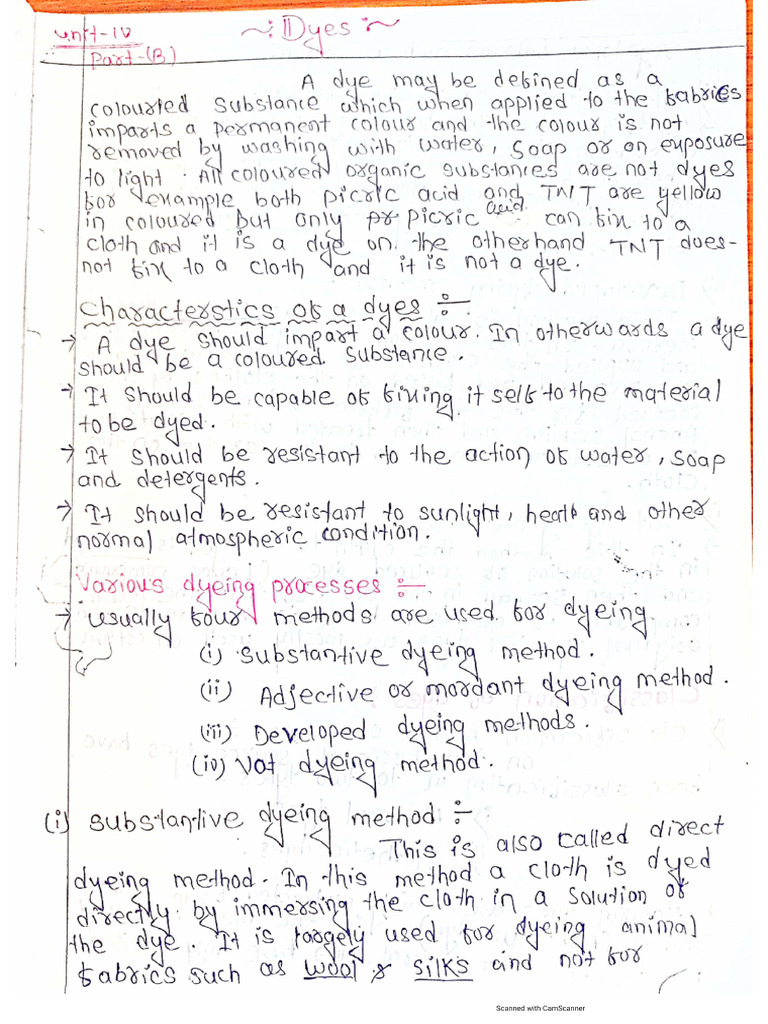 Unit-IV
Part-(B)
~: Dyes :~
A dye may be defined as a
colourted substance which when applied to the fabrics
imparts a permanent colour and the colour is not
removed by washing with water, soap or on exposure
to light. All coloured organic substances are not dyes
for example both picric acid and TNT are yellow
in coloured but only picric acid can fix to a
cloth and it is a dye on the otherhand TNT does-
not fix to a cloth and it is not a dye.
Characterstics of a dyes :-
→ A dye should impart a colour. In otherwards a dye
should be a coloured substance.
→ It should be capable of fixing it self to the material
to be dyed.
→ It should be resistant to the action of water, soap
and detergents.
→ It should be resistant to sunlight, heat and other
normal atmospheric condition.
Various dyeing processes :-
→ usually four methods are used for dyeing
(i) Substantive dyeing method.
(ii) Adjective or mordant dyeing method.
(iii) Developed dyeing methods.
(iv) Vat dyeing method.
(i) substantive dyeing method :-
This is also called direct
dyeing method. In this method a cloth is dyed
directly by immersing the cloth in a solution of
the dye. It is largely used for dyeing animal
fabrics such as wool & silks and not for
Scanned with CamScanner